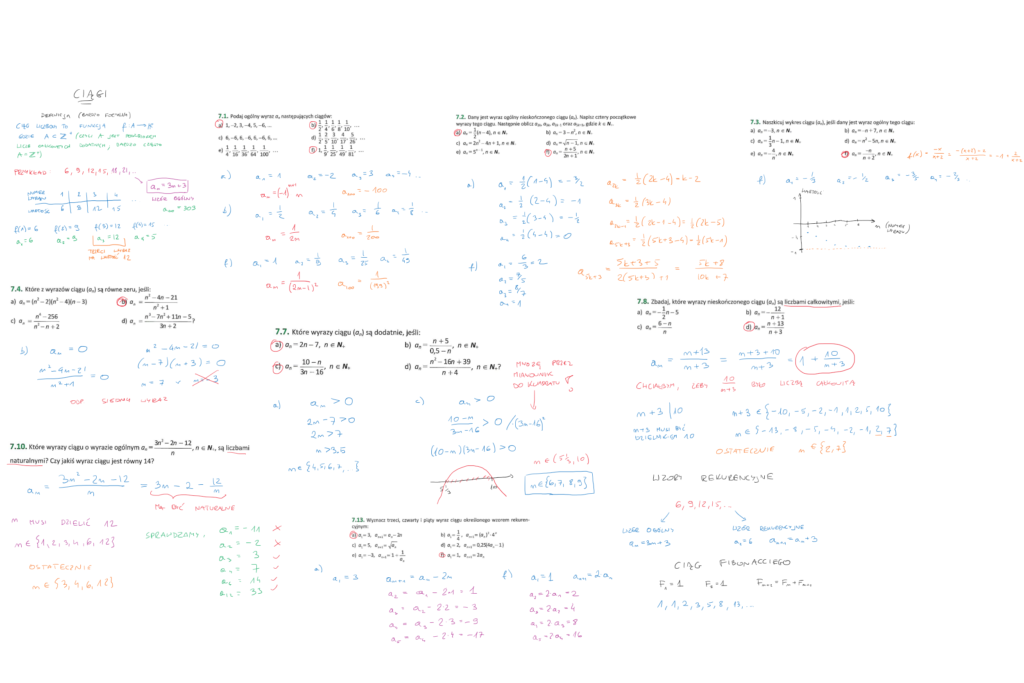 CIĄGI
DEFINICJA
CIĄG LICZBOWY TO FUNKCJA f: A → B
PRZYKŁAD: 6, 9, 12, 15, 18, 21, ...
aₙ = 3n+3
WZÓR OGÓLNY
a₁₀₀ = 303
NUMER WYRAZU 1 2 3 4
WARTOŚĆ 6 9 12 15
f(1)=6 f(2)=9 f(3)=12 f(4)=15
a₁=6 a₂=9 a₃=12 a₄=15
TRZECI WYRAZ MA WARTOŚĆ 12
7.1. Podaj ogólny wyraz aₙ następujących ciągów:
a) 1, -2, 3, -4, 5, -6, ...
b) 1/2, 1/4, 1/6, 1/8, 1/10, ...
c) 6, -6, 6, -6, 6, -6, 6, ...
d) 1/2, 2/5, 3/10, 4/17, 5/26, ...
e) 1/4, 1/16, 1/36, 1/64, 1/100, ...
f) 1, 1/9, 1/25, 1/49, 1/81, ...
a) a₁ = 1 a₂ = -2 a₃ = 3 a₄ = -4 ...
aₙ = (-1)ⁿ⁺¹ n a₁₀₀ = -100
b) a₁ = 1/2 a₂ = 1/4 a₃ = 1/6 a₄ = 1/8 ...
aₙ = 1/2n a₁₀₀ = 1/200
f) a₁ = 1 a₂ = 1/9 a₃ = 1/25 a₄ = 1/49
aₙ = 1/(2n-1)² a₁₀₀ = 1/(199)²
7.2. Dany jest wyraz ogólny nieskończonego ciągu (aₙ). Napisz cztery początkowe
wyrazy tego ciągu.
a) aₙ = 1/2(n-4), n ∈ N₊
b) aₙ = 3 - n², n ∈ N₊
c) aₙ = 2n² - 4n + 1, n ∈ N₊
d) aₙ = √n - 1, n ∈ N₊
e) aₙ = 5ⁿ⁻¹, n ∈ N₊
f) aₙ = (n+5)/(2n+1), n ∈ N₊
a) a₁ = 1/2(1-4) = -3/2
a₂ = 1/2(2-4) = -1
a₃ = 1/2(3-4) = -1/2
a₄ = 1/2(4-4) = 0
a₂ₖ = 1/2(2k-4) = k-2
= 1/2(3k-4)
= 1/2(2k-1-4) = 1/2(2k-5)
a₅ₖ₊₃ = 1/2(5k+3-4) = 1/2(5k-1)
f) a₁ = 6/3 = 2
a₂ = 7/5
a₃ = 8/7
a₄ = 1
a₅ₖ₊₃ = (5k+3+5)/(2(5k+3)+1) = (5k+8)/(10k+7)
7.3. Naszkicuj wykres ciągu (aₙ), jeśli dany jest wyraz ogólny tego ciągu:
a) aₙ = -3, n ∈ N₊
b) aₙ = -n + 7, n ∈ N₊
d) aₙ = n² - 5n, n ∈ N₊
e) aₙ = -4/n, n ∈ N₊
f) aₙ = -n/(n+2), n ∈ N₊
f) a₁ = -1/3 a₂ = -1/2 a₃ = -3/5 a₄ = -2/3 ...
WARTOŚĆ
n (NUMER WYRAZU)
7.4. Które z wyrazów ciągu (aₙ) są równe zeru, jeśli:
a) aₙ = (n² - 2)(n² - 4)(n - 3)
b) aₙ = (n² - 4n - 21)/(n² + 1)
c) aₙ = (n⁴ - 256)/(n² - n + 2)
d) aₙ = (n³ - 7n² + 11n - 5)/(3n + 2)?
b) aₙ = 0 n² - 4n - 21 = 0
(n² - 4n - 21)/(n² + 1) = 0 (n-7)(n+3) = 0
n = 7 ∨ n = -3
ODP SIÓDMY WYRAZ
7.7. Które wyrazy ciągu (aₙ) są dodatnie, jeśli:
a) aₙ = 2n - 7, n ∈ N₊
b) aₙ = (n+5)/(0,5-n), n ∈ N₊
c) aₙ = (10-n)/(3n-16), n ∈ N₊
d) aₙ = (n² - 16n + 39)/(n+4), n ∈ N₊?
a) aₙ > 0
2n - 7 > 0
2n > 7
n > 3,5
n ∈ {4,5,6,7,...}
c) aₙ > 0
(10-n)/(3n-16) > 0 /(3n-16)²
(10-n)(3n-16) > 0
MNOŻĘ PRZEZ
MIANOWNIK
DO KWADRATU !
n ∈ (5 1/3, 10)
n ∈ {6,7,8,9}
7.8. Zbadaj, które wyrazy nieskończonego ciągu (aₙ) są liczbami całkowitymi, jeśli:
a) aₙ = -1/2 n - 5
b) aₙ = 12/(n+1)
c) aₙ = (6-n)/n
d) aₙ = (n+13)/(n+3)
aₙ = (n+13)/(n+3) = (n+3+10)/(n+3) = 1 + 10/(n+3)
CHCIAŁBYM, ŻEBY 10/(n+3) BYŁO LICZBĄ CAŁKOWITĄ
n+3 | 10 n+3 ∈ {-10, -5, -2, -1, 1, 2, 5, 10}
n+3 MUSI BYĆ DZIELNIKIEM 10 n ∈ {-13, -8, -5, -4, -2, -1, 2, 7}
OSTATECZNIE n ∈ {2, 7}
7.10. Które wyrazy ciągu o wyrazie ogólnym aₙ = (3n² - 2n - 12)/n, n ∈ N₊, są liczbami
naturalnymi? Czy jakiś wyraz ciągu jest równy 14?
aₙ = (3n² - 2n - 12)/n = 3n - 2 - 12/n
MA BYĆ NATURALNE
n MUSI DZIELIĆ 12
n ∈ {1, 2, 3, 4, 6, 12}
OSTATECZNIE
n ∈ {3, 4, 6, 12}
SPRAWDZAMY:
a₁ = -11 ×
a₂ = -2 ×
a₃ = 3 ✓
a₄ = 7 ✓
a₆ = 14 ✓
a₁₂ = 33 ✓
7.13. Wyznacz trzeci, czwarty i piąty wyraz ciągu określonego wzorem rekuren-
cyjnym:
a) a₁ = 3, aₙ₊₁ = aₙ - 2n
b) a₁ = 1/4, aₙ₊₁ = (aₙ)² · 4ⁿ
c) a₁ = 5, aₙ₊₁ = √aₙ
d) a₁ = 2, aₙ₊₁ = 0,25(4aₙ - 1)
e) a₁ = -3, aₙ₊₁ = 1 + 1/aₙ
f) a₁ = 1, aₙ₊₁ = 2aₙ
a) a₁ = 3 aₙ₊₁ = aₙ - 2n
a₂ = a₁ - 2·1 = 1
a₃ = a₂ - 2·2 = -3
a₄ = a₃ - 2·3 = -9
a₅ = a₄ - 2·4 = -17
f) a₁ = 1 aₙ₊₁ = 2aₙ
a₂ = 2a₁ = 2
a₃ = 2a₂ = 4
a₄ = 2a₃ = 8
a₅ = 2a₄ = 16
WZORY REKURENCYJNE
6, 9, 12, 15, ...
WZÓR OGÓLNY
aₙ = 3n+3
WZÓR REKURENCYJNY
a₁ = 6 aₙ₊₁ = aₙ + 3
CIĄG FIBONACCIEGO
F₁ = 1 F₂ = 1 Fₙ₊₂ = Fₙ + Fₙ₊₁
1, 1, 2, 3, 5, 8, 13, ...